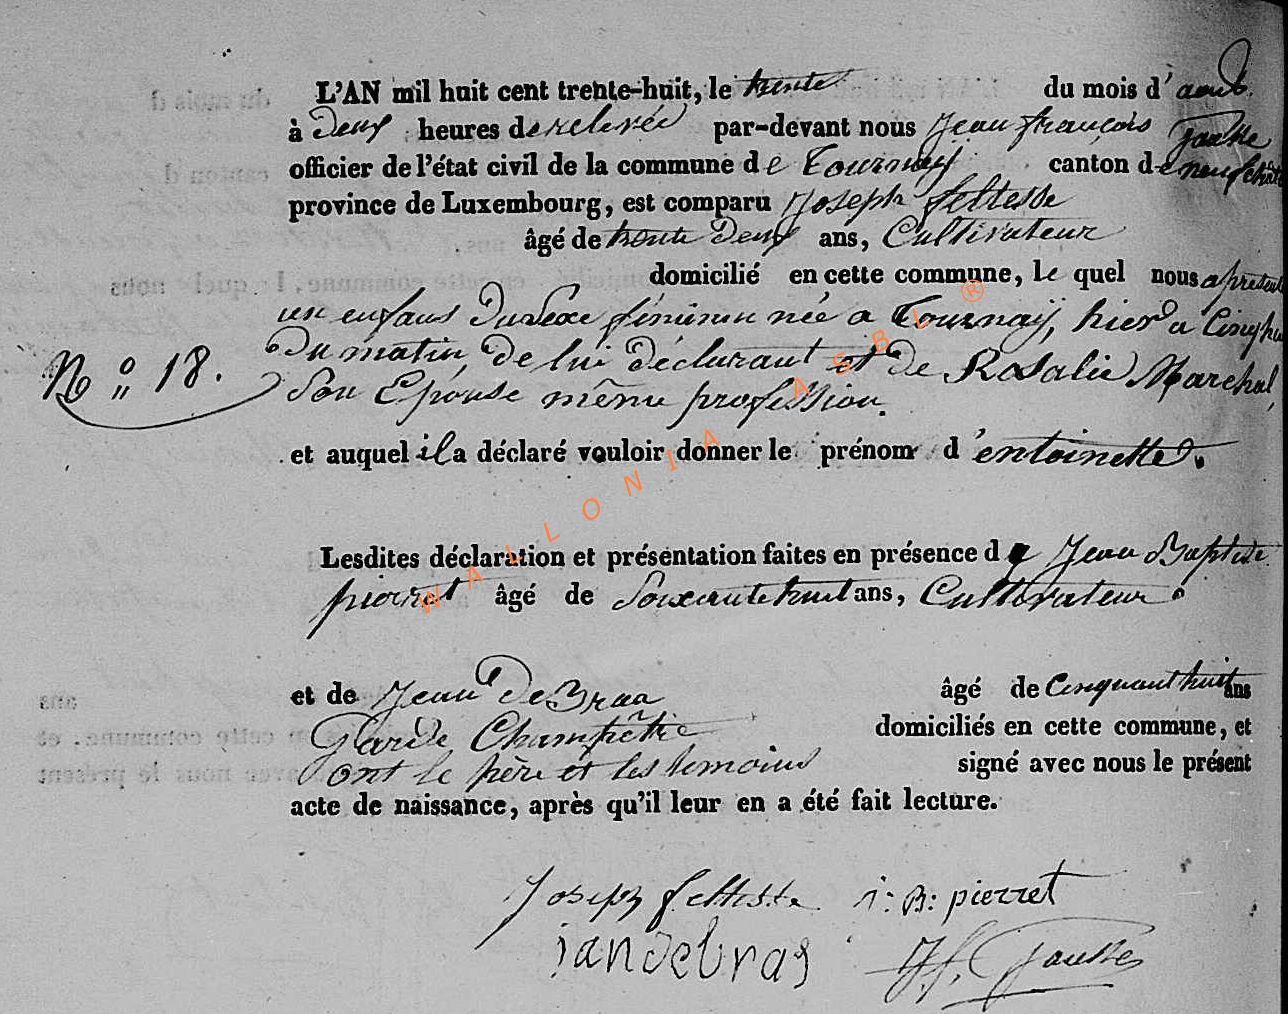 L'AN mil huit cent trente-huit, le trente du mois d'aout
à Deux heures de relevée par-devant nous Jean françois Gausse
officier de l'état civil de la commune de Tournaÿ canton de neufchât
province de Luxembourg, est comparu Joseph fettesse
âgé de trente Deux ans, Cultivateur
domicilié en cette commune, le quel nous a présenté
un enfans Du Sexe féminin née a Tournaÿ, hier a Cinq h
Du matin, de lui déclarant et De Rosalie Marchal,
N° 18.
Son Epouse même profession.
et auquel il a déclaré vouloir donner le prénom d'entoinette.
Lesdites déclaration et présentation faites en présence de Jean Baptiste
pierret âgé de Soixante huit ans, Cultivateur.
et de Jean De Braa âgé de Cinquant huit ans
Garde Champêtre domiciliés en cette commune, et
ont le père et les temoins signé avec nous le présent
acte de naissance, après qu'il leur en a été fait lecture.
Joseph fettesse J: B: pierret
jandebras J f. Gausse
WALLONIA ASBL ®